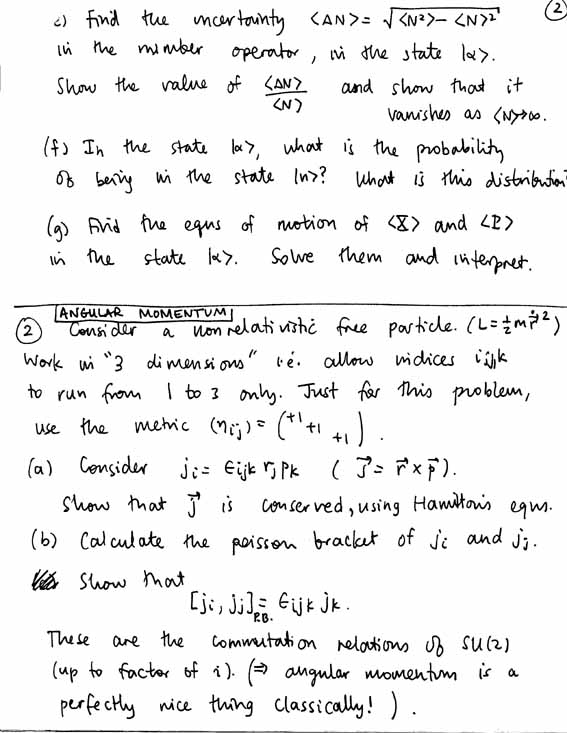 ②
c) Find the uncertainty <ΔN> = √<N²> - <N>²
in the number operator, in the state |α>.
Show the value of <ΔN>/<N> and show that it
vanishes as <N>→∞.
(f) In the state |α>, what is the probability
of being in the state |n>? What is this distribution?
(g) Find the eqns of motion of <X> and <P>
in the state |α>. Solve them and interpret.
ANGULAR MOMENTUM
② Consider a nonrelativistic free particle. (L = ½ m ṙ⃗ ²)
Work in "3 dimensions" i.e. allow indices i,j,k
to run from 1 to 3 only. Just for this problem,
use the metric (η_ij) = (+1 +1 +1).
(a) Consider j_i = ϵ_ijk r_j p_k ( J⃗ = r⃗ × p⃗ ).
Show that J⃗ is conserved, using Hamilton's eqns.
(b) Calculate the poisson bracket of j_i and j_j.
Show that
[j_i, j_j]_P.B. = ϵ_ijk j_k.
These are the commutation relations of SU(2)
(up to factor of i). (⇒ angular momentum is a
perfectly nice thing classically! ).